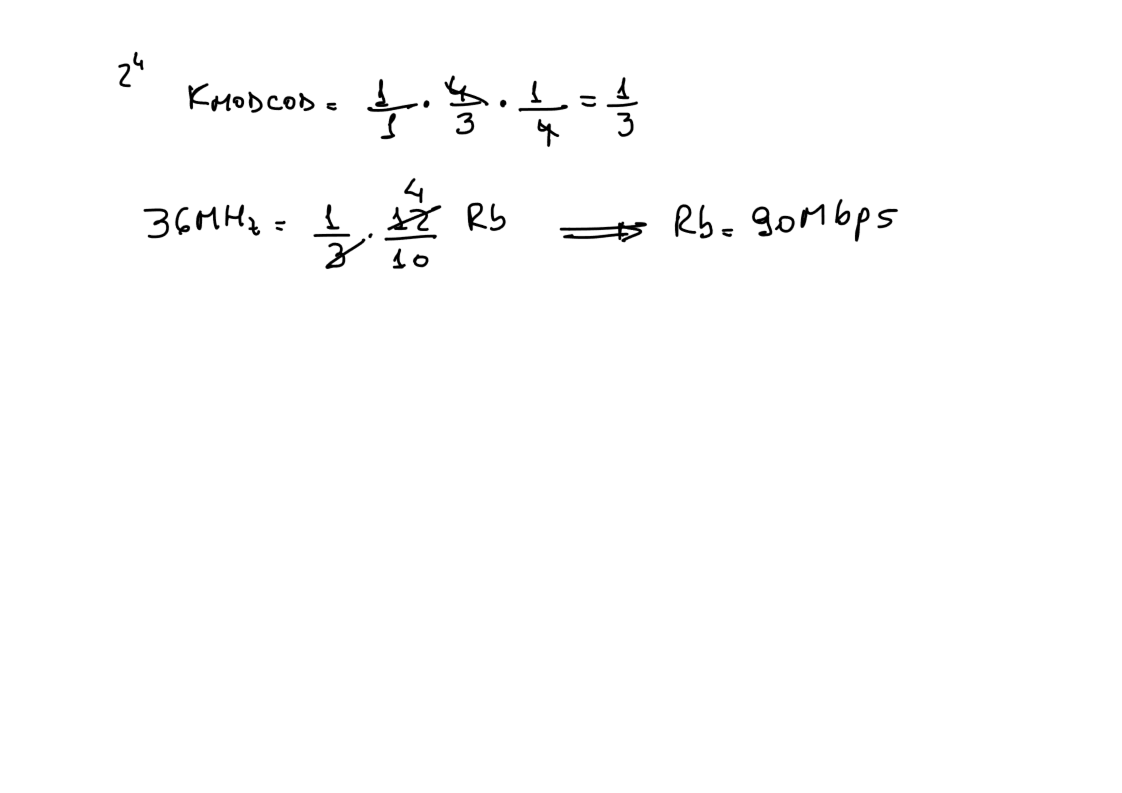 2^4
KMODCOD = 1/1 · 4/3 · 1/4 = 1/3
4
36MHz = 1/3 · 12/10 Rb ⟹ Rb = 90Mbps